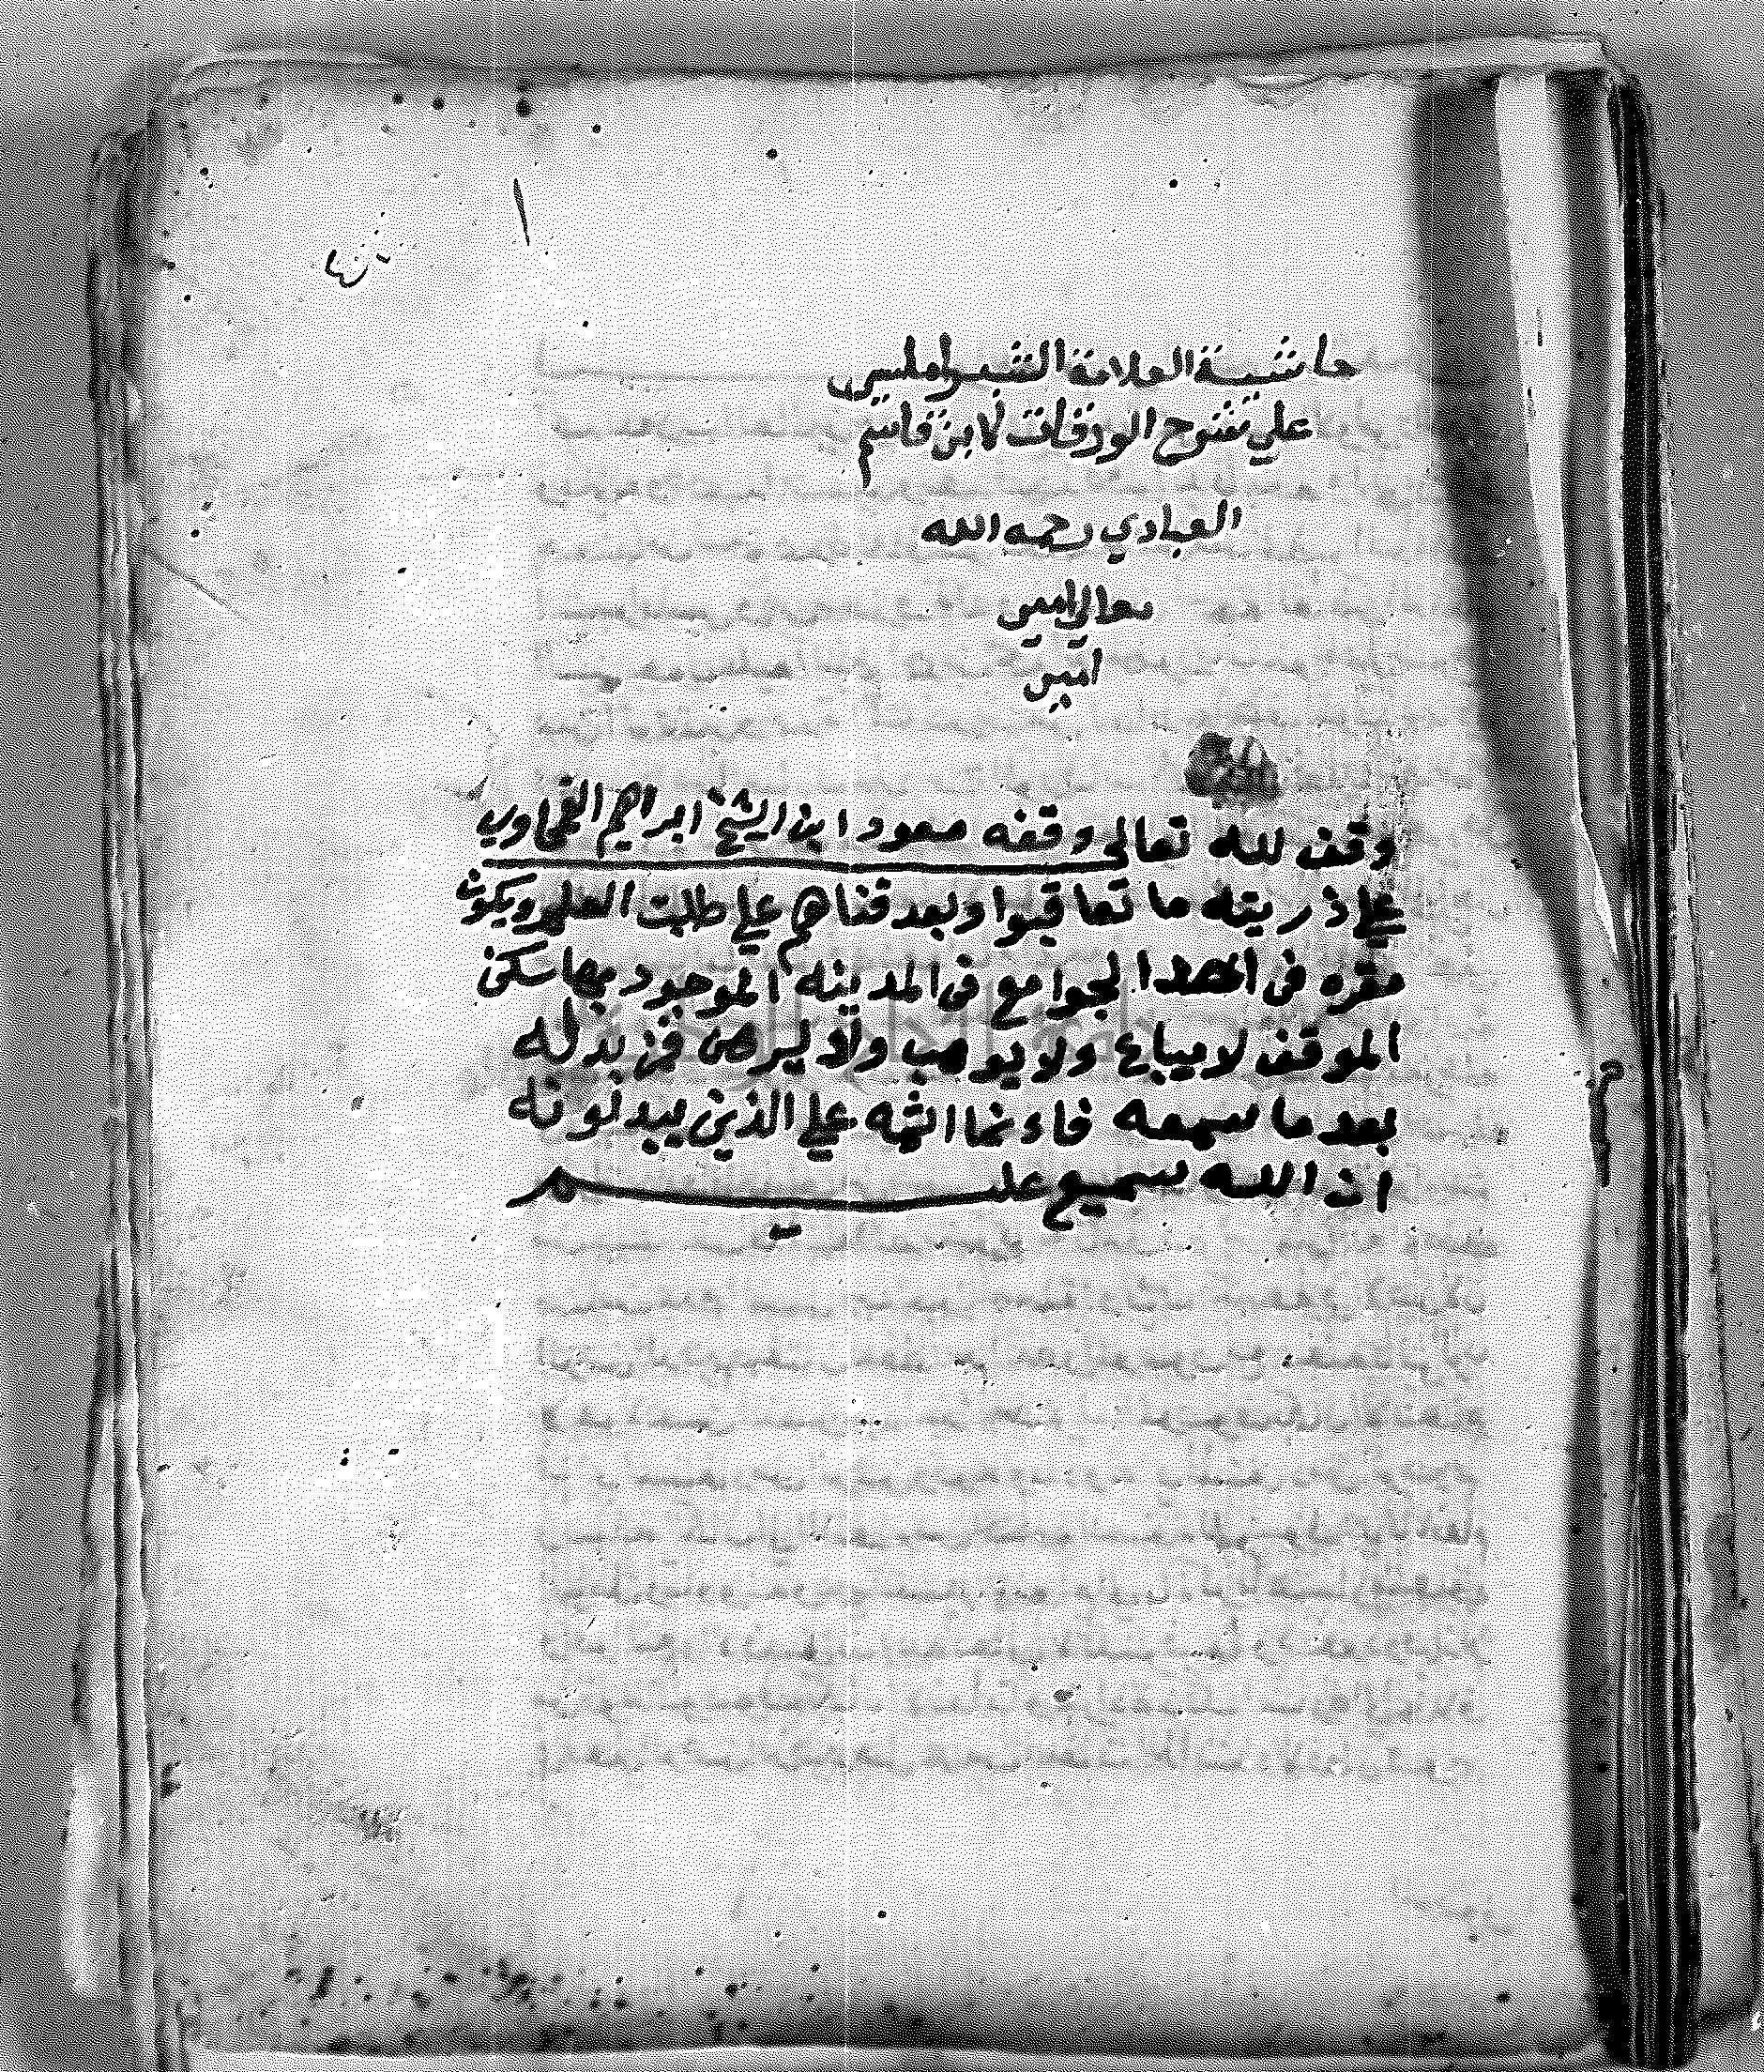 حاشية العلامة الشبراملسي
علي شرح الورقات لابن قاسم
العبادي رحمه الله
تعالي امين
امين
وقف لله تعالى وقفه سعود ابن الشيخ ابراهيم
علي ذريته ما تعاقبوا وبعد فناهم علي طلبت العلم ويكون
مقره في الجوامع في المدينه الموجود بها سكن
الموقف لا يباع ولا يوهب ولا يرهن فمن بدله
بعد ما سمعه فاءنما اثمه علي الذين يبدلونه
ان الله سميع عليم